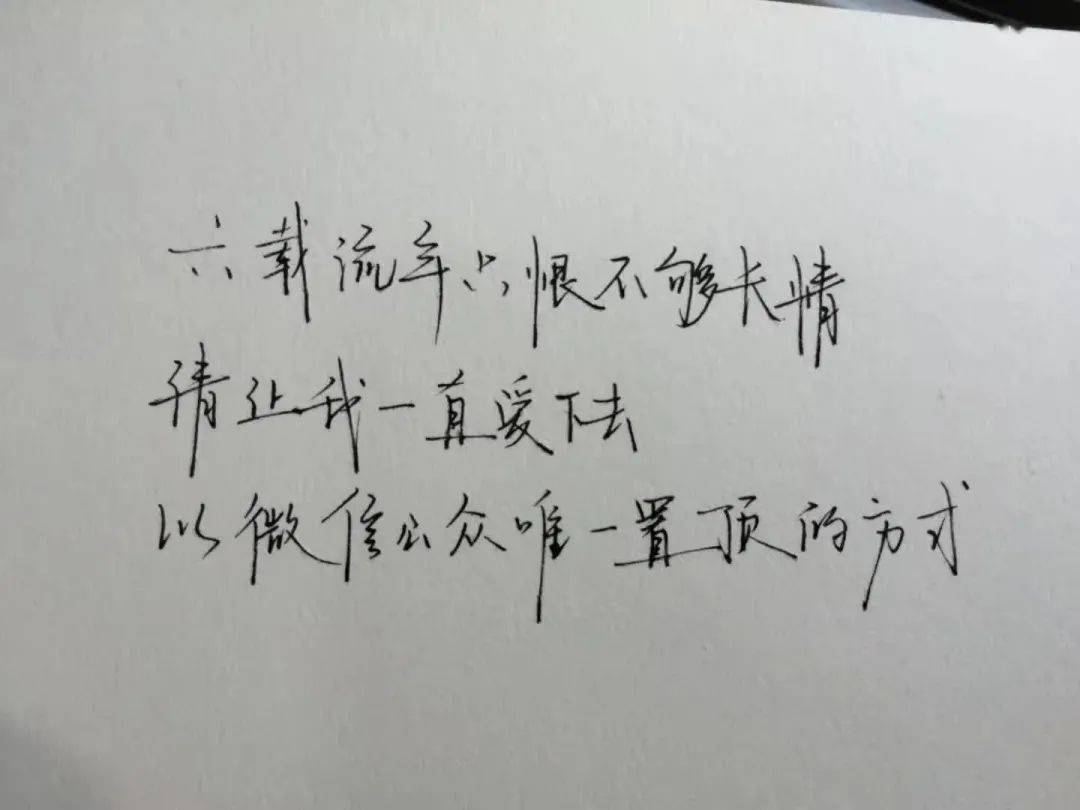 六载流年只恨不够长情
请让我一直爱下去
以微信公众唯一置顶的方式